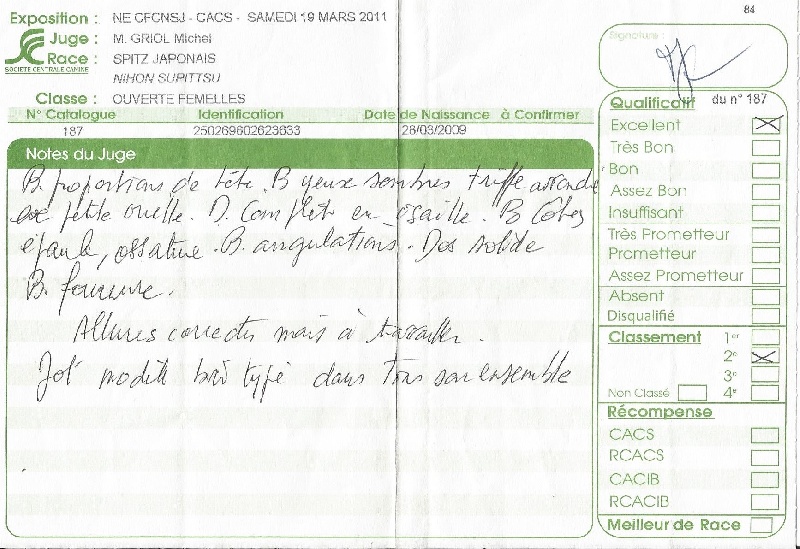 84
Exposition : NE CFCNSJ - CACS - SAMEDI 19 MARS 2011
Juge : M. GRIOL Michel
Race : SPITZ JAPONAIS
SOCIETE CENTRALE CANINE
NIHON SUPITTSU
Classe : OUVERTE FEMELLES
N° Catalogue Identification Date de Naissance à Confirmer
187 250269602623633 28/03/2009
Notes du Juge
B. proportions de tête. B yeux sombres truffe
petite oreille. D. Complète en cisaille. B Côtes
épaule, ossature. B. angulations. Dos solide
B. fourrure.
Allures correctes mais à travailler.
Joli modèle bien typé dans tous son ensemble
Signature :
Qualificatif du n° 187
Excellent
Très Bon
Bon
Assez Bon
Insuffisant
Très Prometteur
Prometteur
Assez Prometteur
Absent
Disqualifié
Classement 1er
2e
3e
Non Classé 4e
Récompense
CACS
RCACS
CACIB
RCACIB
Meilleur de Race